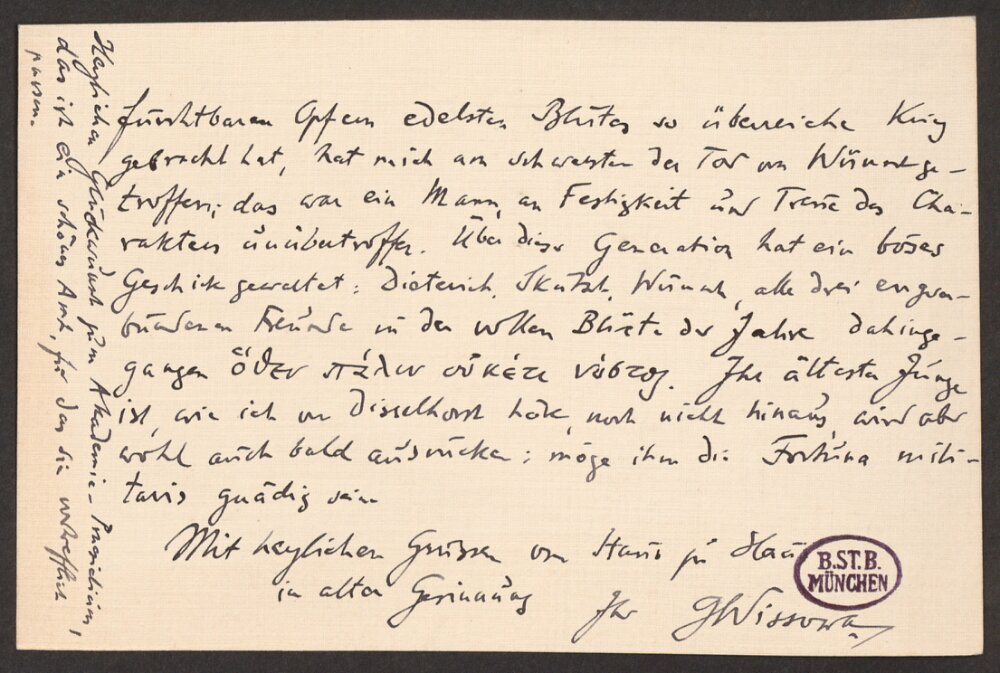 furchtbaren Opfern edelsten Blutes so überreiche Krieg
gebracht hat, hat mich am schwersten der Tod von Wünsch ge-
troffen; das war ein Mann, an Festigkeit und Treue des Cha-
rakters unübertroffen. Über dieser Generation hat ein böses
Geschick gewaltet: Dieterich, Skutsch, Wünsch, alle drei engver-
bundenen Freunde in der vollen Blüte der Jahre dahinge-
gangen ὅθεν πάλιν οὐκέτι νόστος. Ihr ältester Junge
ist, wie ich von Disselhorst höre, noch nicht hinaus, wird aber
wohl auch bald ausrücken: möge ihm die Fortuna mili-
taris gnädig sein.
Mit herzlichen Grüssen von Haus zu Haus
in alter Gesinnung
Ihr GWissowa
B.ST.B.
MÜNCHEN
Herzlichen Glückwunsch zum Akademie-Praesidium,
das ist ein schönes Amt, für das Sie vortrefflich
passen.